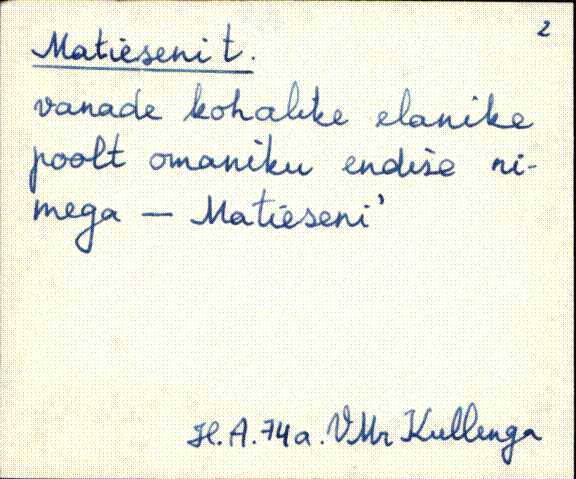 2
Matiéseni t.
vanade kohalike elanike
poolt omaniku endise ni-
mega — Matiéseni'
H. A. 74 a. VMr Kullenga